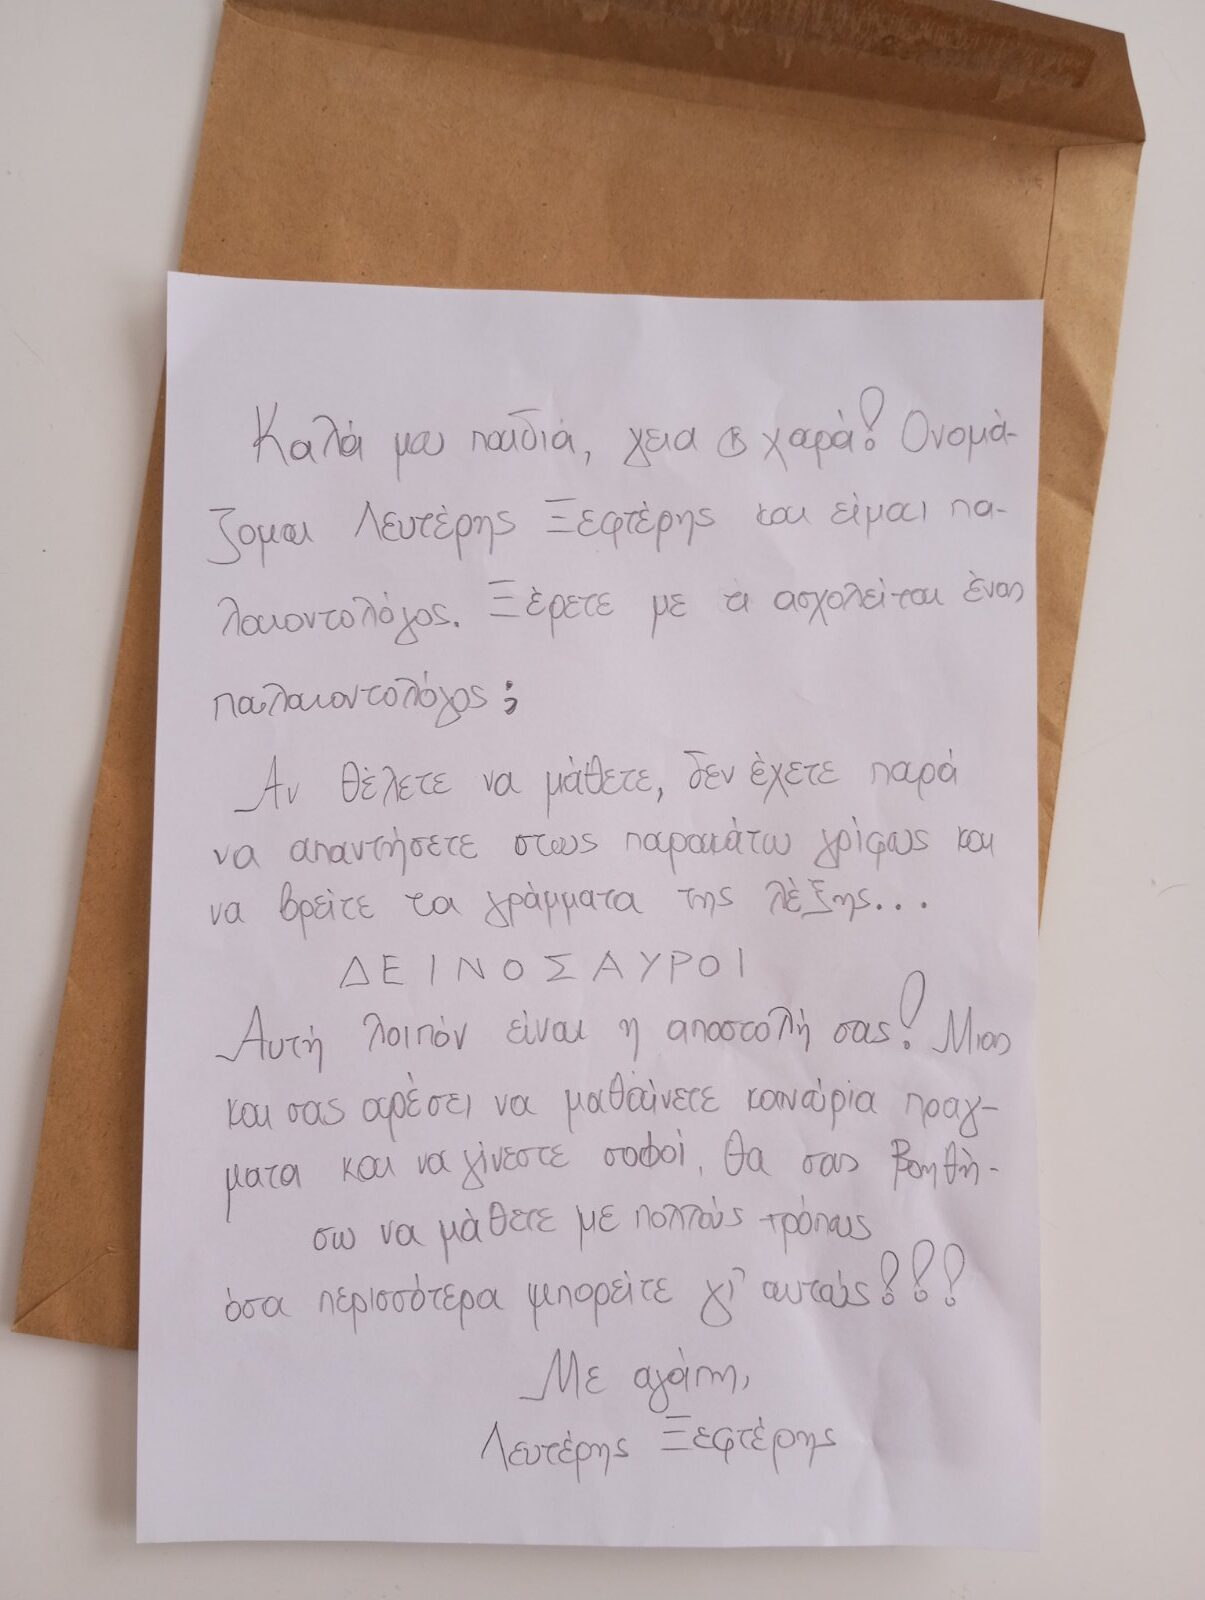 Καλά μου παιδιά, γεια & χαρά! Ονομά-
ζομαι Λευτέρης Ξεφτέρης και είμαι πα-
λαιοντολόγος. Ξέρετε με τι ασχολείται ένας
παλαιοντολόγος;
Αν θέλετε να μάθετε, δεν έχετε παρά
να απαντήσετε στους παρακάτω γρίφους και
να βρείτε τα γράμματα της λέξης...
ΔΕΙΝΟΣΑΥΡΟΙ
Αυτή λοιπόν είναι η αποστολή σας! Μιας
και σας αρέσει να μαθαίνετε καινούρια πραγ-
ματα και να γίνεστε σοφοί, θα σας βοηθή-
σω να μάθετε με πολλούς τρόπους
όσα περισσότερα μπορείτε γι' αυτούς!!!
Με αγάπη,
Λευτέρης Ξεφτέρης